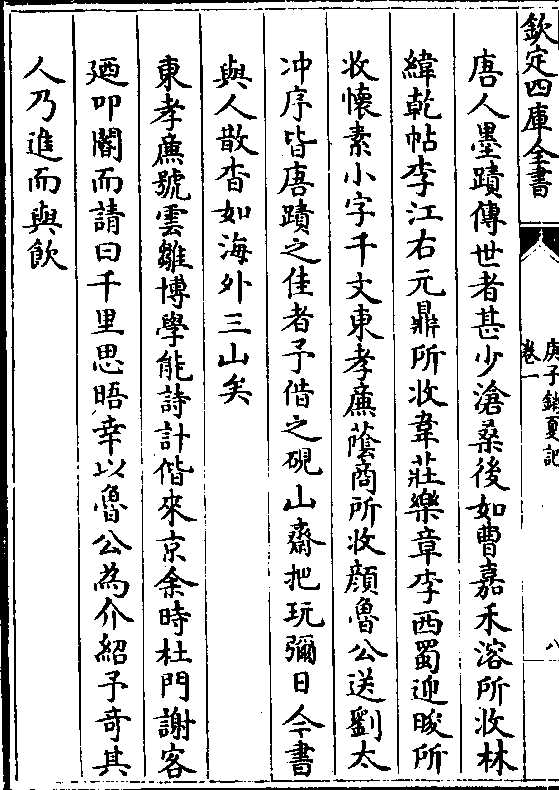 欽定四庫全書
庚子銷夏記
卷一
八
唐人墨蹟傳世者甚少滄桑後如曹嘉禾溶所收林
緯乾帖李江右元鼎所收韋莊樂章李西蜀迎晙所
收懷素小字千文東孝廉蔭商所收顔魯公送劉太
冲序皆唐蹟之佳者予借之硯山齋把玩彌日今書
與人散杳如海外三山矣
東孝廉號雲雛博學能詩計偕來京余時杜門謝客
廼叩閽而請曰千里思晤幸以魯公為介紹予奇其
人乃進而與飲